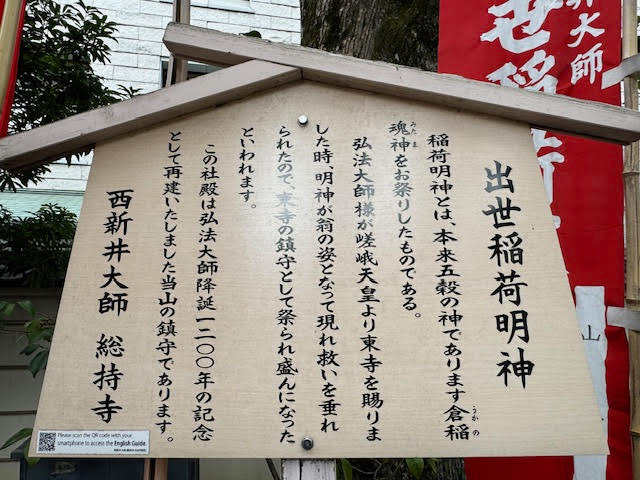 出世稲荷明神
稲荷明神とは、本来五穀の神であります倉稲
うかの
魂神をお祭りしたものである。
みたま
弘法大師様が嵯峨天皇より東寺を賜りま
した時、明神が翁の姿となって現れ救いを垂れ
られたので、東寺の鎮守として祭られ盛んになった
といわれます。
この社殿は弘法大師降誕一二〇〇年の記念
として再建いたしました当山の鎮守であります。
西新井大師 総持寺
Please scan the QR code with your
smartphone to access the English Guide.
世稲荷
大師
山